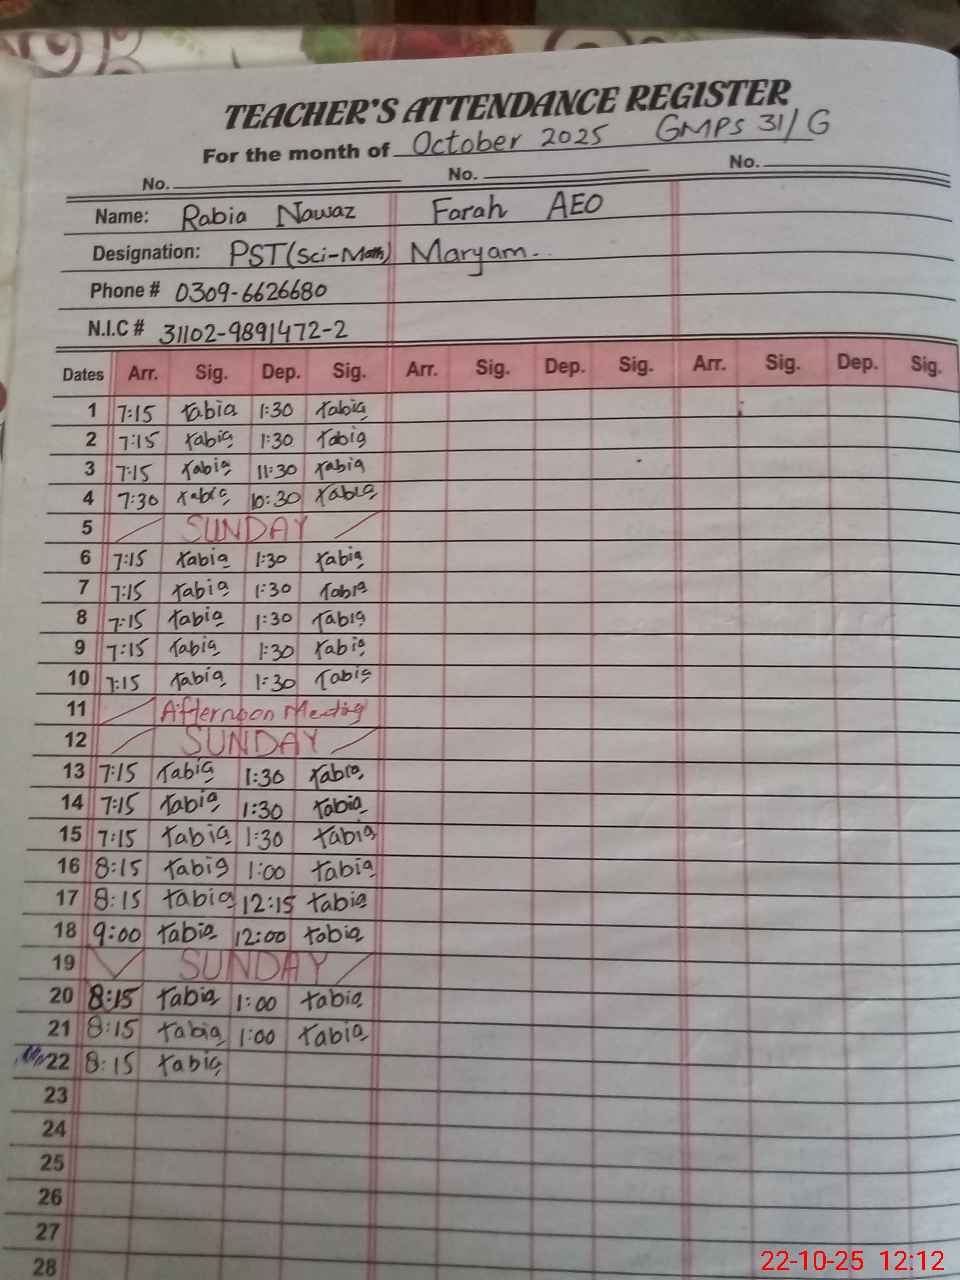 TEACHER'S ATTENDANCE REGISTER
For the month of October 2025 GMPS 31/G
No. No. No.
Name: Rabia Nawaz Farah AEO
Designation: PST(Sci-Math) Maryam..
Phone # 0309-6626680
N.I.C # 31102-9891472-2
Dates Arr. Sig. Dep. Sig. Arr. Sig. Dep. Sig. Arr. Sig. Dep. Sig.
1 7:15 rabia 1:30 rabia
2 7:15 rabia 1:30 rabia
3 7:15 rabia 11:30 rabia
4 7:30 rabia 10:30 rabia
5 SUNDAY
6 7:15 rabia 1:30 rabia
7 7:15 rabia 1:30 rabia
8 7:15 rabia 1:30 rabia
9 7:15 rabia 1:30 rabia
10 7:15 rabia 1:30 rabia
11 Afternoon Meeting
12 SUNDAY
13 7:15 rabia 1:30 rabia
14 7:15 rabia 1:30 rabia
15 7:15 rabia 1:30 rabia
16 8:15 rabia 1:00 rabia
17 8:15 rabia 12:15 rabia
18 9:00 rabia 12:00 rabia
19 SUNDAY
20 8:15 rabia 1:00 rabia
21 8:15 rabia 1:00 rabia
22 8:15 rabia
23
24
25
26
27
28
22-10-25 12:12